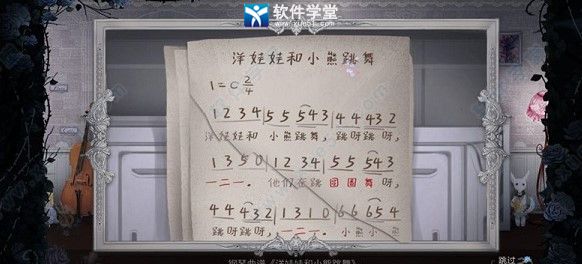 软件学堂
www.xue51.com
洋娃娃和小熊跳舞
1=C 2/4
1 2 3 4 | 5 5 5 4 3 | 4 4 4 3 2
洋娃娃和 小熊跳舞, 跳呀跳呀,
1 3 5 0 | 1 2 3 4 | 5 5 5 4 3
一二一. 他们在跳 团圆舞呀,
4 4 4 3 2 | 1 3 1 0 | 6 6 6 5 4
跳呀跳呀, 一二一. 小熊小熊
钢琴曲谱《洋娃娃和小熊跳舞》
跳过